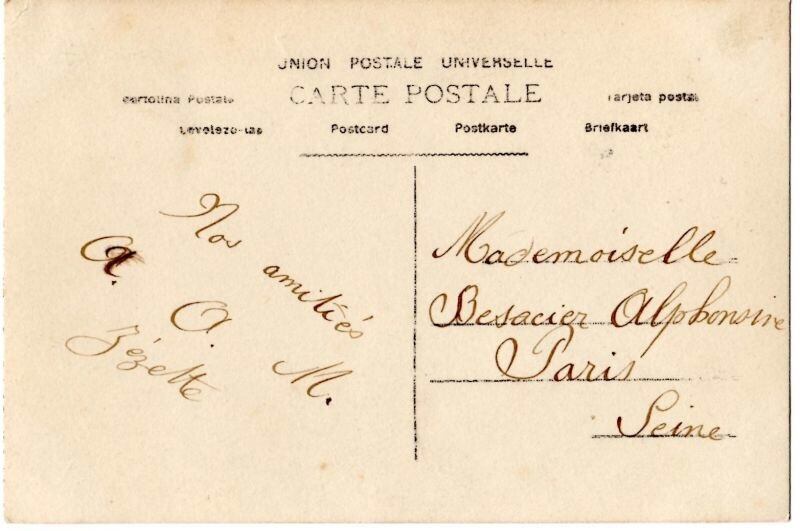 UNION POSTALE UNIVERSELLE
Cartolina Postale CARTE POSTALE Tarjeta postal
Levelezo-lap Postcard Postkarte Briefkaart
Nos amitiés
A. A. M.
Zézette
Mademoiselle
Besacier Alphonsine
Paris
Seine